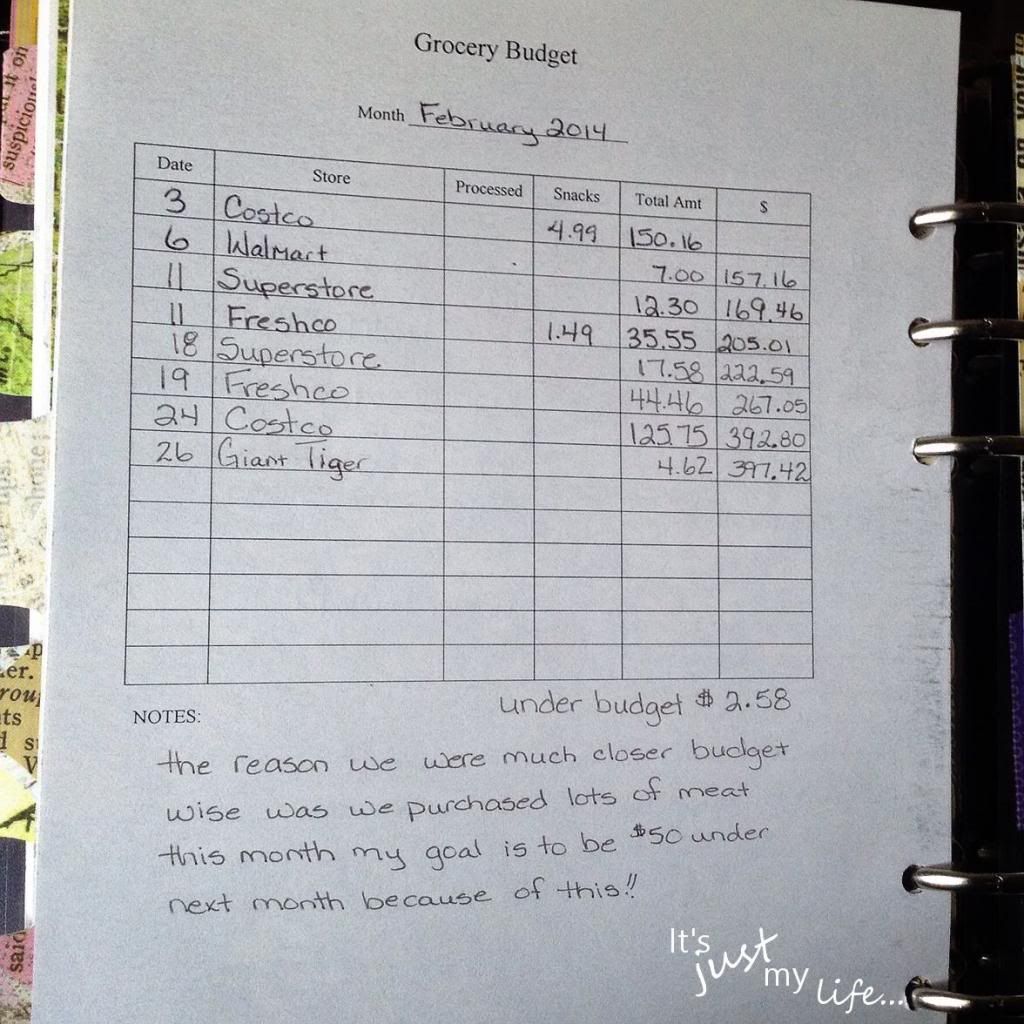 Grocery Budget
Month February 2014
Date Store Processed Snacks Total Amt $
3 Costco 4.99 150.16
6 Walmart 7.00 157.16
11 Superstore 12.30 169.46
11 Freshco 1.49 35.55 205.01
18 Superstore 17.58 222.59
19 Freshco 44.46 267.05
24 Costco 125.75 392.80
26 Giant Tiger 4.62 397.42
under budget $ 2.58
NOTES:
the reason we were much closer budget
wise was we purchased lots of meat
this month my goal is to be $50 under
next month because of this!!
It's
just
my
life...
suspicious